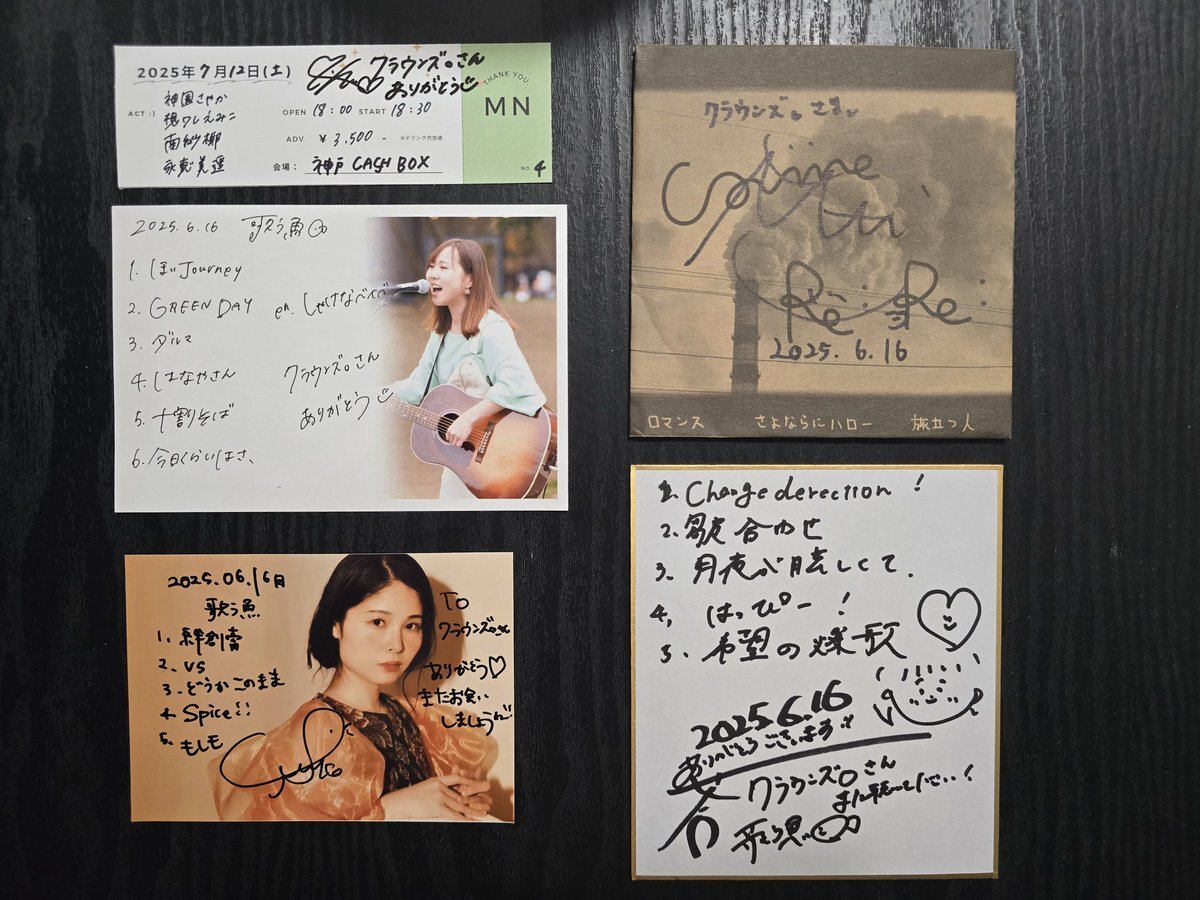 2025年7月12日(土)
クラウンズ。さん
ありがとう
ACT :)
神園さやか
南紗椰
OPEN 18:00 START 18:30
ADV ¥3,500- ※ドリンク代別途
会場: 神戸 CASH BOX
THANK YOU.
MN
NO. 4
2025.6.16 歌う魚
1. Journey
2. GREEN DAY
3. ダルマ
4. はなやさん
5. 十割そば
6. 今日くらいはさ、
en. しゃけなべいべ
クラウンズ。さん
ありがとう
2025.06.16月
歌う魚
1. 絆創膏
2. vs
3. どうかこのまま
4. Spice!!
5. もしも
To
クラウンズ。さん
ありがとう♡
またお会い
しましょう
クラウンズ。さま
2025.6.16
ロマンス さよならにハロー 旅立つ人
1. Change derection!
2. 歌合わせ
3. 月夜が眩しくて.
4. はっぴー!
5. 希望の燦歌
2025.6.16
ありがとうございます
クラウンズ。さん
歌う魚